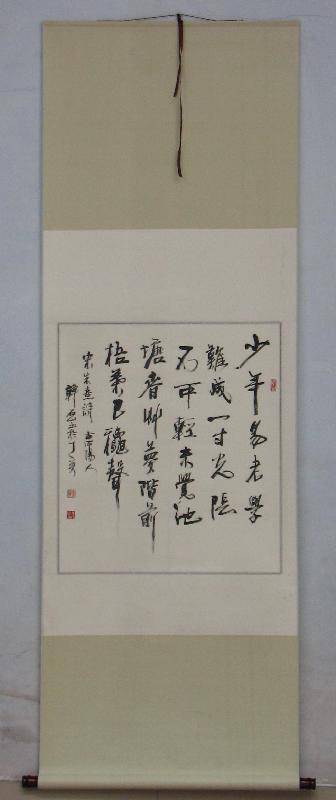 少年易老學
難成一寸光陰
不可輕未覺池
塘春艸夢階前
梧葉已龝聲
宋朱熹詩
韓